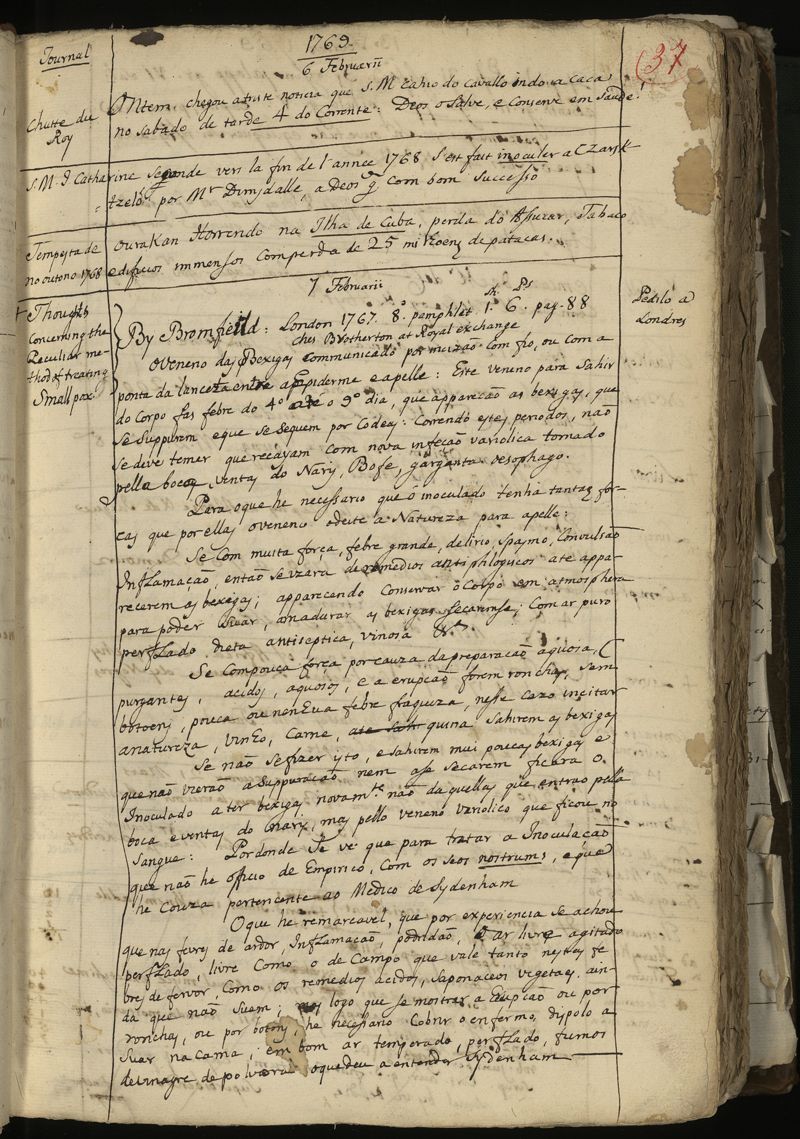 Journal
1769.
6 Februarii
37
Chutte du
Roy
Ontem, chegou a triste noticia que S. M. Cahio do cavallo indo a Caca
no sabado de tarde 4 do Corrente: Deos o Salve, e Conserve em Saude!
S. M. I Catharine Segonde vers la fin de l'année 1768 S'est fait inoculer a Czarsk
tzelo por Mr Dimsdalle, a Deos g. Com bom Successo
Tempesta de
no outono 1768
Ourakan Horrendo na Ilha de Cuba, perda do Assucar, Tabaco
edificios immensos Com perda de 25 milhoens de patacas.
7 Februarii
+ Thoughts
Concerning the
Peculiar me-
thod of treating
Small pox
Pedilo a
Londres
Sh. Ps
By Bromfeild: London 1767. 8º pamphlet 1. 6. pag. 88
ches Brotherton at Royal exchange
O veneno das Bexigas Communicado por incizaõ com fio, ou com a
ponta da lanceta entre a epiderme e a pelle: Este veneno para Sahir
do Corpo fas febre do 4º até o 9º dia, que apparecaõ as bexigas, que
se Suppurem e que se sequem por Codeas: Correndo estes periodos, naõ
se deve temer que recayam com nova infecaõ variolica tornado
pella boca, ventas do Naris, Bofe, garganta oesophago.
Para o que he necessario que o inoculado tenha tantas for-
cas que por ellas o veneno deite a Natureza para a pelle:
Se Com muita forca, febre grande, delirio, Spasmo, Convulsaõ
Inflamaçaõ, entaõ se uzara de remedios antiphlogicos ate appa-
recerem as bexigas; apparecendo Conservar o Corpo em atmosphera
para poder Suar, amadurar as bexigas secarense; Com ar puro
perflado dieta antiseptica, vinosa &a.
Se Com pouca forca por cauza da preparacaõ aquosa,
purgantes, acidos, aquosos, e a erupcaõ forem ronchas, sem
botoens, pouca ou nenhua febre fraqueza, nesse cazo incitar
a natureza, vinho, Carne, quina Sahirem as bexigas
Se naõ se fizer isto, e sahirem mui poucas bexigas e
que naõ vieraõ a Suppuracaõ nem a se secarem ficara o
Inoculado a ter bexigas novamte. naõ daquellas que entraõ pella
boca e ventas do naris, mas pello veneno variolico que ficou no
Sangue: Por donde se ve que para tratar a Inoculacaõ
que naõ he officio de Empirico, Com os seos nostrums, e que
he Couza pertencente ao Medico de Sydenham
O que he remarcavel, que por experiencia se achou
que nas fevres de ardor, Inflamacaõ, podridaõ, O ar livre agitado
perflado, livre Como o de Campo que vale tanto nestas fe
bres de fervor Como os remedios acidos, saponaceos vegetaes, ain-
da que naõ Suem; mas logo que se mostrar a Erupcaõ ou por
ronchas, ou por botons, he necessario Cobrir o enfermo, dispolo a
Suar na cama, em bom ar temporado, perflado, fumos
de vinagre de polvora o que deu a entender Sydenham